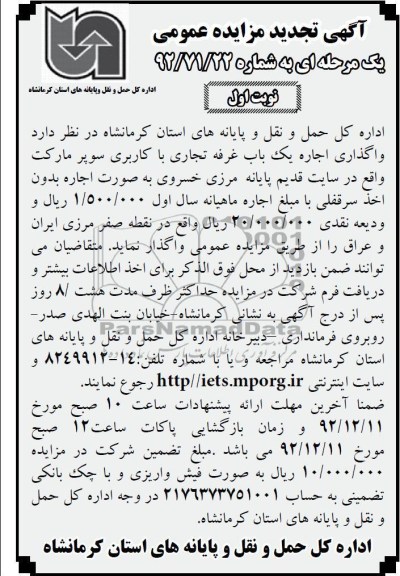 آگهی تجدید مزایده عمومی
یک مرحله ای به شماره ۹۲/۷۱/۲۲
نوبت اول
اداره کل حمل و نقل وپایانه های استان کرمانشاه
اداره کل حمل و نقل و پایانه های استان کرمانشاه در نظر دارد
واگذاری اجاره یک باب غرفه تجاری با کاربری سوپر مارکت
واقع در سایت قدیم پایانه مرزی خسروی به صورت اجاره بدون
اخذ سرقفلی با مبلغ اجاره ماهیانه سال اول ۱/۵۰۰/۰۰۰ ریال و
ودیعه نقدی ۲۰/۰۰۰/۰۰۰ ریال واقع در نقطه صفر مرزی ایران
و عراق را از طریق مزایده عمومی واگذار نماید. متقاضیان می
توانند ضمن بازدید از محل فوق الذکر برای اخذ اطلاعات بیشتر و
دریافت فرم شرکت در مزایده حداکثر ظرف مدت هشت /۸ روز
پس از درج آگهی به نشانی کرمانشاه-خیابان بنت الهدی صدر-
روبروی فرمانداری- دبیرخانه اداره کل حمل و نقل و پایانه های
استان کرمانشاه مراجعه و یا با شماره تلفن:۱۴-۸۲۴۹۹۱۲ و
سایت اینترنتی http//iets.mporg.ir رجوع نمایند.
ضمنا آخرین مهلت ارائه پیشنهادات ساعت ۱۰ صبح مورخ
۹۲/۱۲/۱۱ و زمان بازگشایی پاکات ساعت۱۲ صبح
مورخ ۹۲/۱۲/۱۱ می باشد .مبلغ تضمین شرکت در مزایده
۱۰/۰۰۰/۰۰۰ ریال به صورت فیش واریزی و یا چک بانکی
تضمینی به حساب ۲۱۷۶۳۷۳۷۵۱۰۰۱ در وجه اداره کل حمل
و نقل و پایانه های استان کرمانشاه.
اداره کل حمل و نقل و پایانه های استان کرمانشاه
ParsNamadData